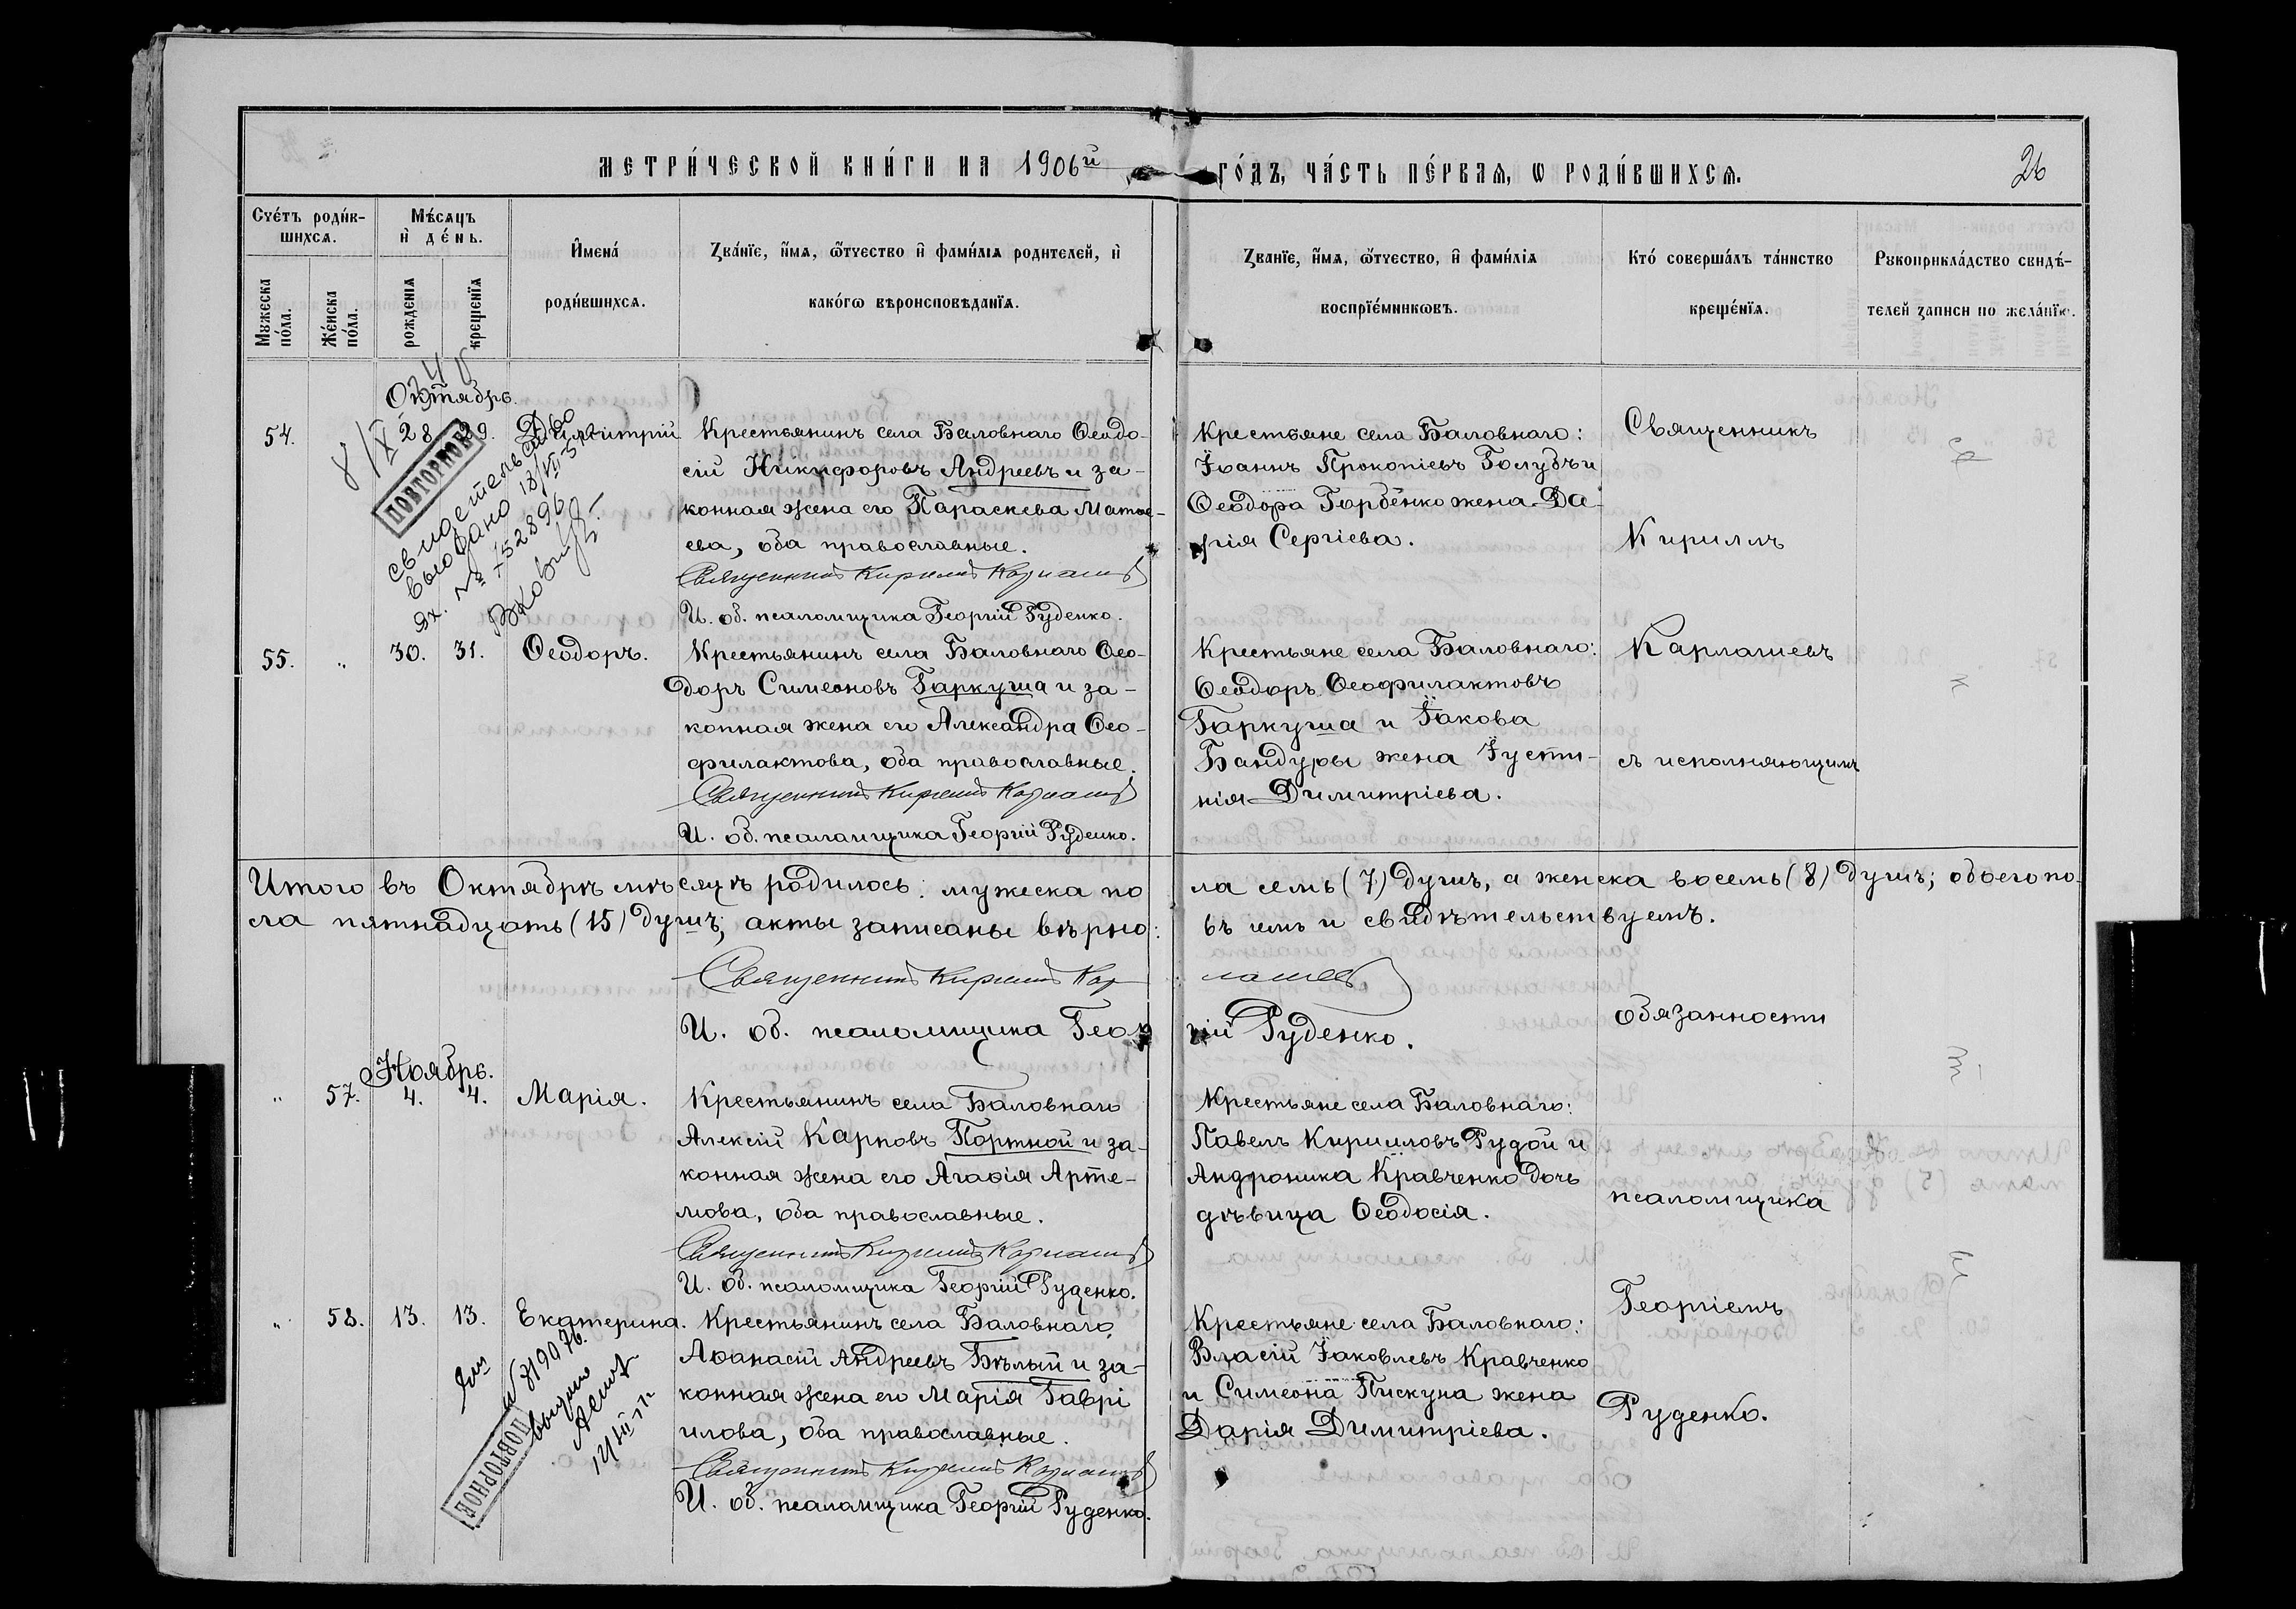 МЕТРИ́ЧЕСКОЙ КНИ́ГИ НА 1906й ГО́ДЪ, ЧА́СТЬ ПЕ́РВАѦ, Ѡ РОДИ́ВШИХСѦ.
26
Сче́тъ роди́в-
шихсѧ.
Мꙋжеска по́ла.
Же́нска по́ла.
Мѣ́сѧцъ
и҆ де́нь.
рожденїѧ
крещенїѧ
И҆мена́
роди́вшихсѧ.
Зва́нїе, и҆́мѧ, ѻ҆́тчество и҆ фами́лїѧ родителей, и҆
како́гѡ вѣроисповѣданїѧ.
Званїе, и҆́мѧ, ѻ҆́тчество, и҆ фами́лїѧ
воспрїе́мникѡвъ.
Кто́ соверша́лъ та́инство
креще́нїѧ.
Рꙋкоприкла́дство свидѣ́-
телей записи по жела́нїю.
Октябрь.
54. 28. 29. Димитрій
Крестьянинъ села Баловнаго Ѳеодо-
сій Никифоровъ Андреевъ и за-
конная жена его Параскева Матѳе-
ева, оба православные.
Священникъ Кириллъ Карлашевъ
И. об. псаломщика Георгій Руденко.
Крестьяне села Баловнаго:
Іоаннъ Прокопіевъ Голубъ и
Ѳеодора Горбенко жена Да-
рія Сергіева.
8/IX
ПОВТОРНОЕ
свидетельство
выдано 18/VII
вх. № 752896
55. „ 30. 31. Ѳеодоръ.
Крестьянинъ села Баловнаго Ѳео-
доръ Симеоновъ Гаркуша и за-
конная жена его Александра Ѳео-
филактова, оба православные.
Священникъ Кириллъ Карлашевъ
И. об. псаломщика Георгій Руденко.
Крестьяне села Баловнаго:
Ѳеодоръ Ѳеофилактовъ
Гаркуша и Іакова
Бандуры жена Іусти-
нія Димитріева.
Итого въ Октябрѣ мѣсяцѣ родилось: мужеска по ла семь (7) душъ, а женска восемь (8) душъ; обоего по-
ла пятнадцать (15) душъ; акты записаны вѣрно: въ чемъ и свидѣтельствуемъ.
Священникъ Кириллъ Кар лашевъ
И. об. псаломщика Геор гій Руденко.
Ноябрь.
„ 57. 4. 4. Марія.
Крестьянинъ села Баловнаго
Алексій Карповъ Портной и за-
конная жена его Агаѳія Арте-
мова, оба православные.
Священникъ Кириллъ Карлашевъ
И. об. псаломщика Георгій Руденко.
Крестьяне села Баловнаго:
Павелъ Кирилловъ Рудой и
Андроника Кравченко дочь
дѣвица Ѳеодосія.
„ 58. 13. 13. Екатерина.
Крестьянинъ села Баловнаго
Аѳанасій Андреевъ Бѣлый и за-
конная жена его Марія Гаврі
илова, оба православные.
Священникъ Кириллъ Карлашевъ
И. об. псаломщика Георгій Руденко.
Крестьяне села Баловнаго:
Власій Іаковлевъ Кравченко
и Симеона Пискуна жена
Дарія Димитріева.
ПОВТОРНОЕ
выдано
Священникъ
Кириллъ
Карлашевъ
съ исполняющимъ
обязанности
псаломщика
Георгіемъ
Руденко.